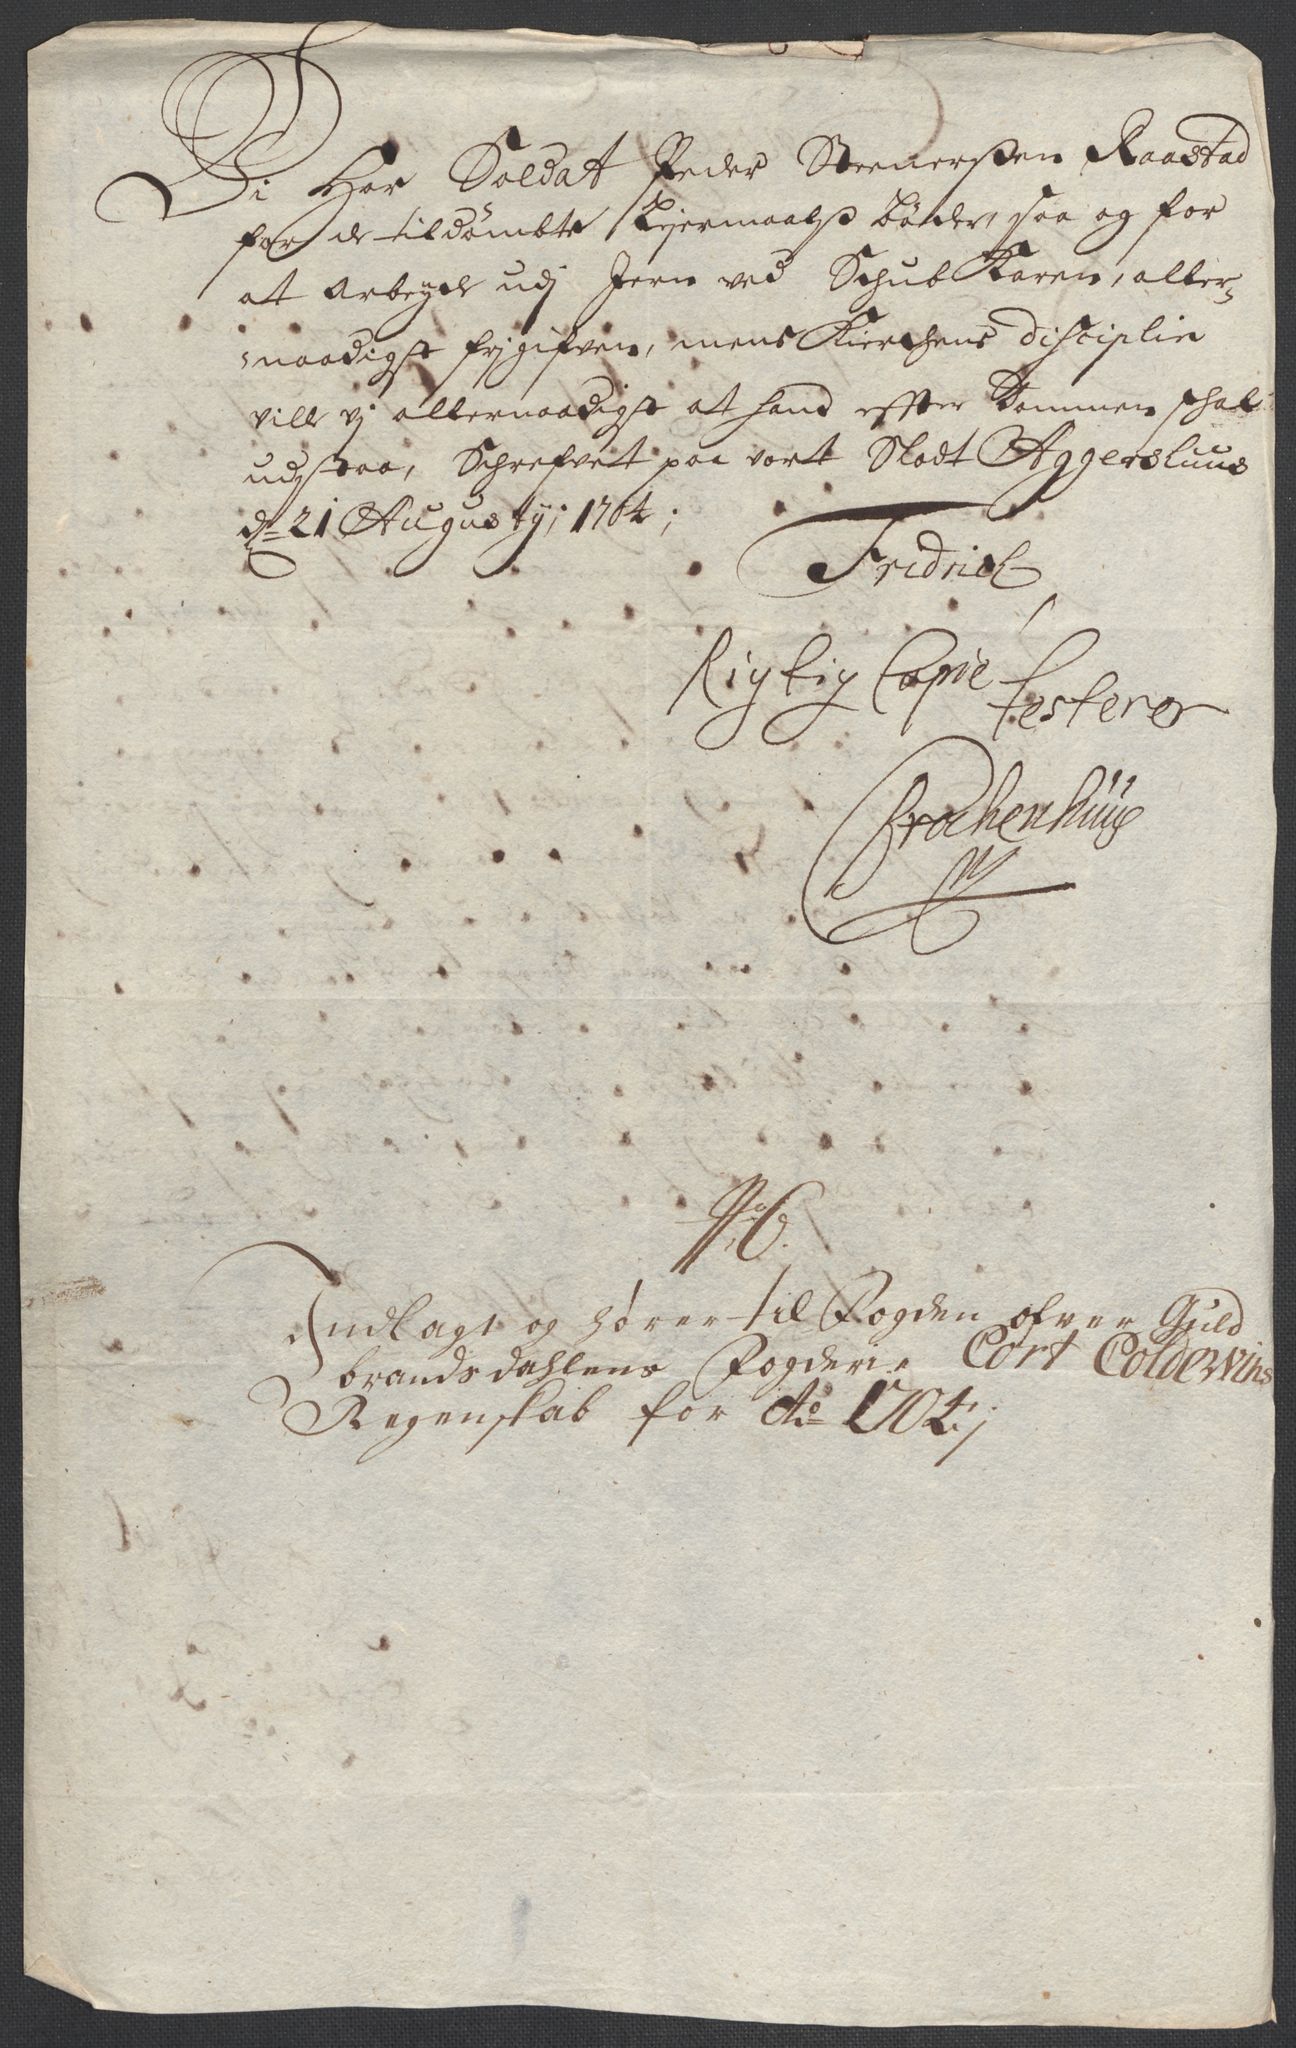 Vi Har Soldat Peder Steenersen Raastad
for de tildømbte Leyermaals bøder, saa og for
at Arbeyde udj Jern ved SchubKaren, aller-
naadigst frjgifven, mens Kierchens disciplin
ville vj allernaadigst at hand effter Dommen schal
udstaa, Schrefvet paa vort Slodt Aggershuus
d: 21 Augustij; 1704;
Fridrich
Rigtig Copie testerer
Brochenhuus
No 6.
Indlagt og hører til Fogden ofver Guld
brandsdahlens Fogderie Cort Coldewins
Regenskab for Ao 1704;